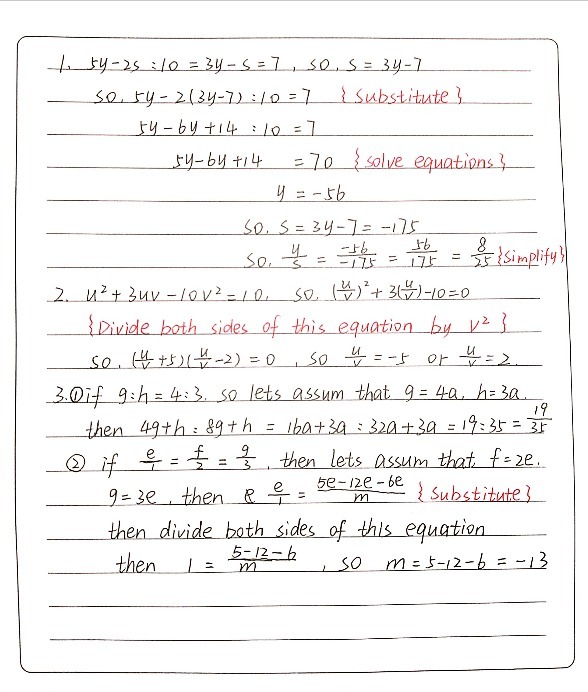 1. 5y-2s:10=3y-s=7, so. s=3y-7
so. 5y-2(3y-7):10=7 {Substitute}
5y-6y+14:10=7
5y-6y+14 =70 {solve equations}
y=-56
so. s=3y-7=-175
so. y/s = -56/-175 = 56/175 = 8/25 {Simplify}
2. u²+3uv-10v²=10, so. (u/v)²+3(u/v)-10=0
{Divide both sides of this equation by v²}
so. (u/v+5)(u/v-2)=0, so u/v=-5 or u/v=2
3. ①if g:h=4:3. so lets assum that g=4a, h=3a.
then 4g+h:8g+h=16a+3a:32a+3a=19:35=19/35
② if e/1=f/2=g/3, then lets assum that f=2e.
g=3e, then e/1=5e-12e-6e/m {Substitute}
then divide both sides of this equation
then 1=5-12-6/m, so m=5-12-6=-13